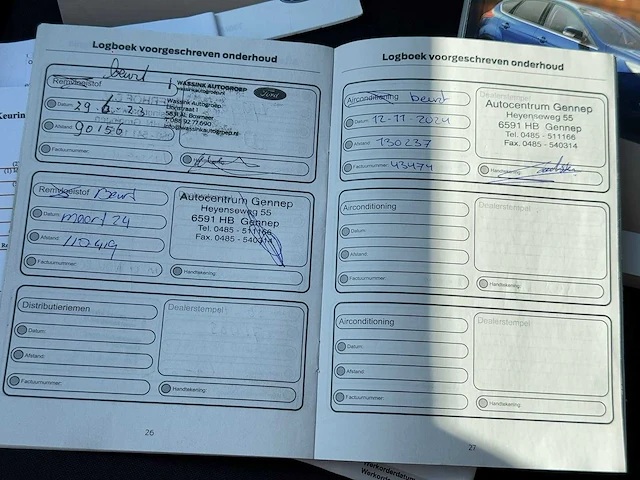 Logboek voorgeschreven onderhoud
beurt
Remvloeistof
WASSINK AUTOGROEP
wassinkautogroep.nl
Ford
Wassink Autogroep
Datum: 29-6-23
Afstand: 90156
info@wassinkautogroep.nl
Factuurnummer:
Remvloeistof Beurt
Datum: maart 24
Afstand: 110.419
Factuurnummer:
Autocentrum Gennep
Heyenseweg 55
6591 HB Gennep
Tel. 0485 - 511166
Fax. 0485 - 540314
Handtekening:
Distributieriemen
Datum:
Afstand:
Factuurnummer:
Dealerstempel
Handtekening:
26
Logboek voorgeschreven onderhoud
Airconditioning beurt
Datum: 12-11-2024
Afstand: 130237
Factuurnummer: 43474
Dealerstempel
Autocentrum Gennep
Heyenseweg 55
6591 HB Gennep
Tel. 0485 - 511166
Fax. 0485 - 540314
Handtekening:
Airconditioning
Datum:
Afstand:
Factuurnummer:
Dealerstempel
Handtekening:
Airconditioning
Datum:
Afstand:
Factuurnummer:
Dealerstempel
Handtekening:
27
Werkorderdatum